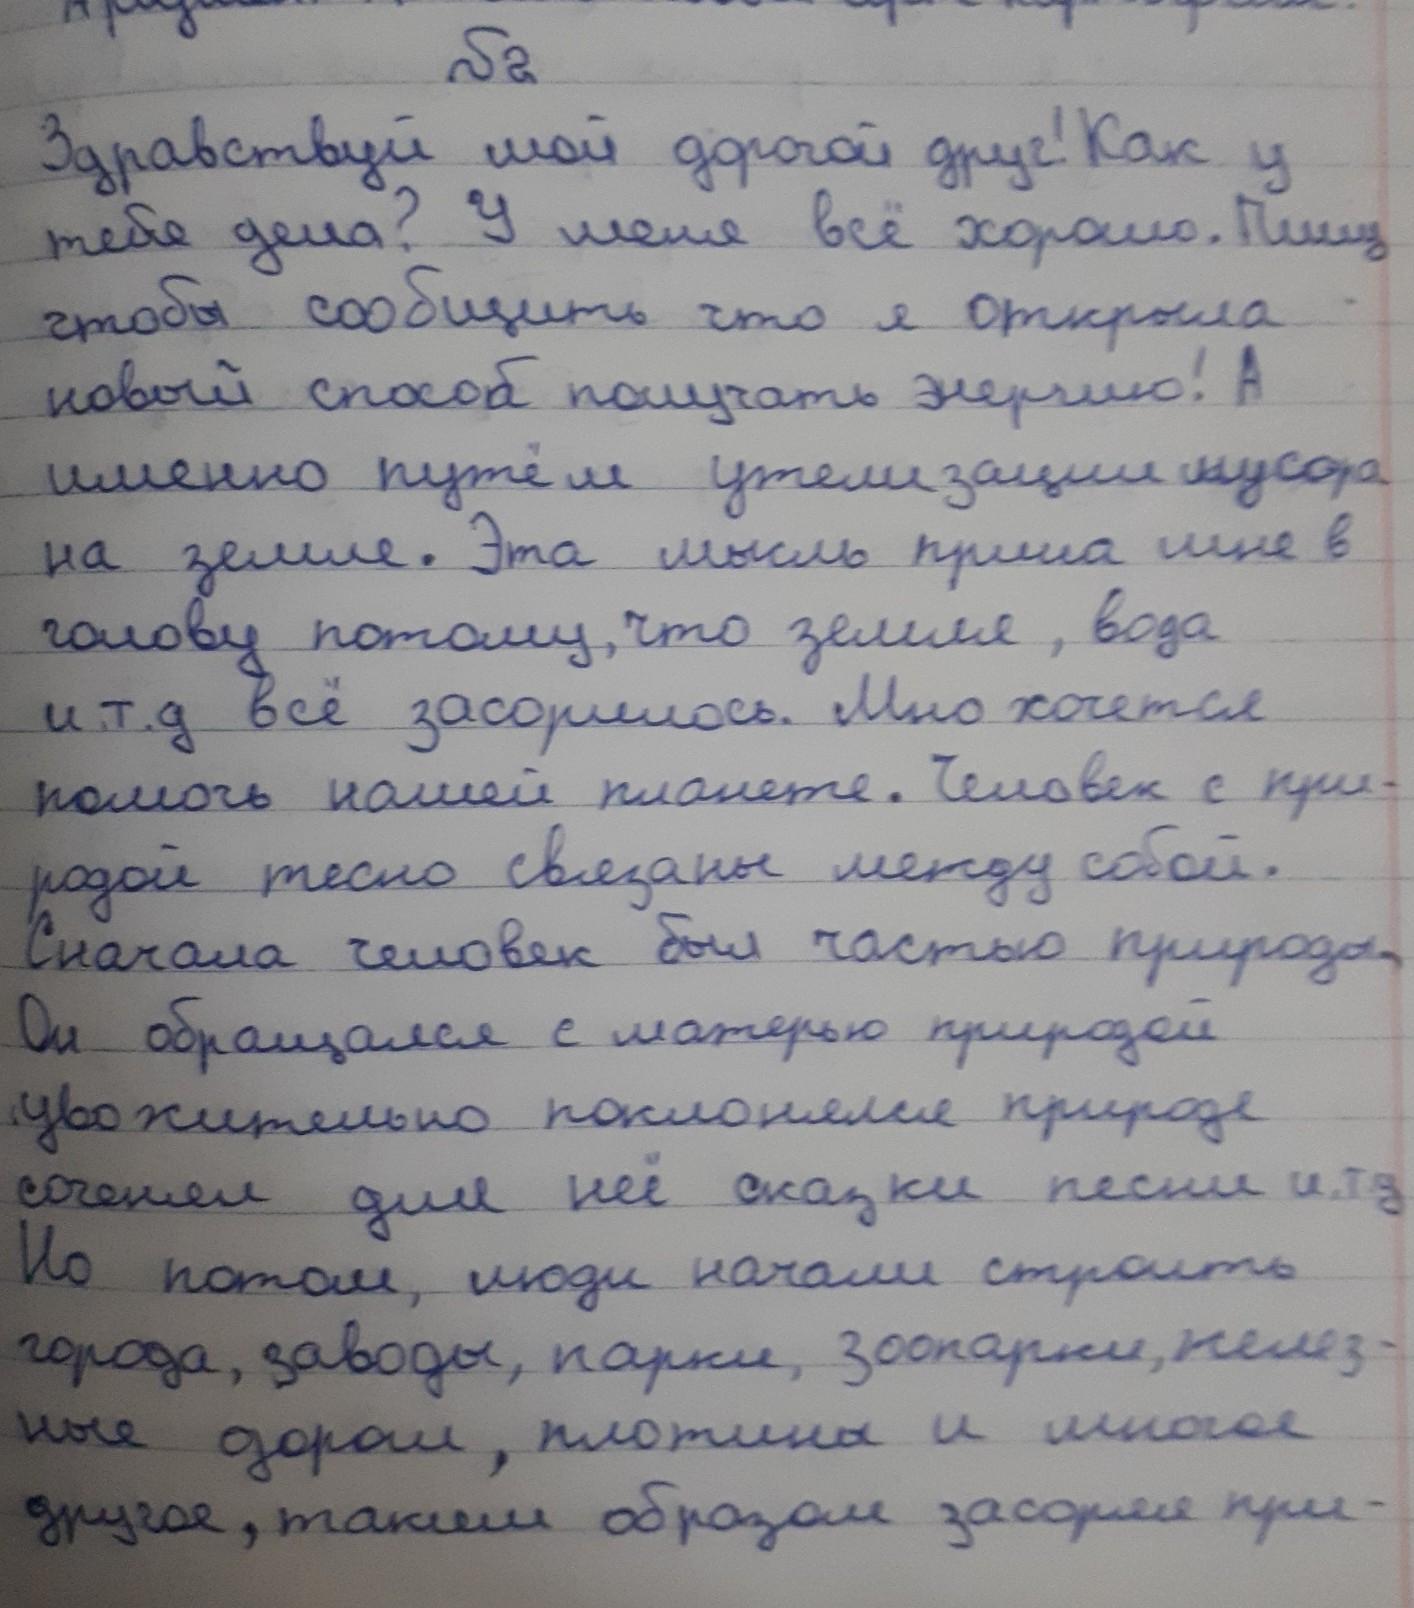 №2
Здравствуй мой дорогой друг! Как у
тебя дела? У меня всё хорошо. Пишу
чтобы сообщить что я открыла
новый способ получать энергию! А
именно путём утелизации мусора
на земле. Эта мысль пришла мне в
голову потому, что земля, вода
и.т.д всё засорилось. Мно хочется
помочь нашей планете. Человек с при-
родой тесно связаны между собой.
Сначала человек был частью природы.
Он обращался с матерью природой
уважительно поклонялся природе
сочинял для неё сказки песни и.т.д
Но потом, люди начали строить
города, заводы, парки, зоопарки, желез-
ные дороги, плотины и многое
другое, таким образом засоряя при-